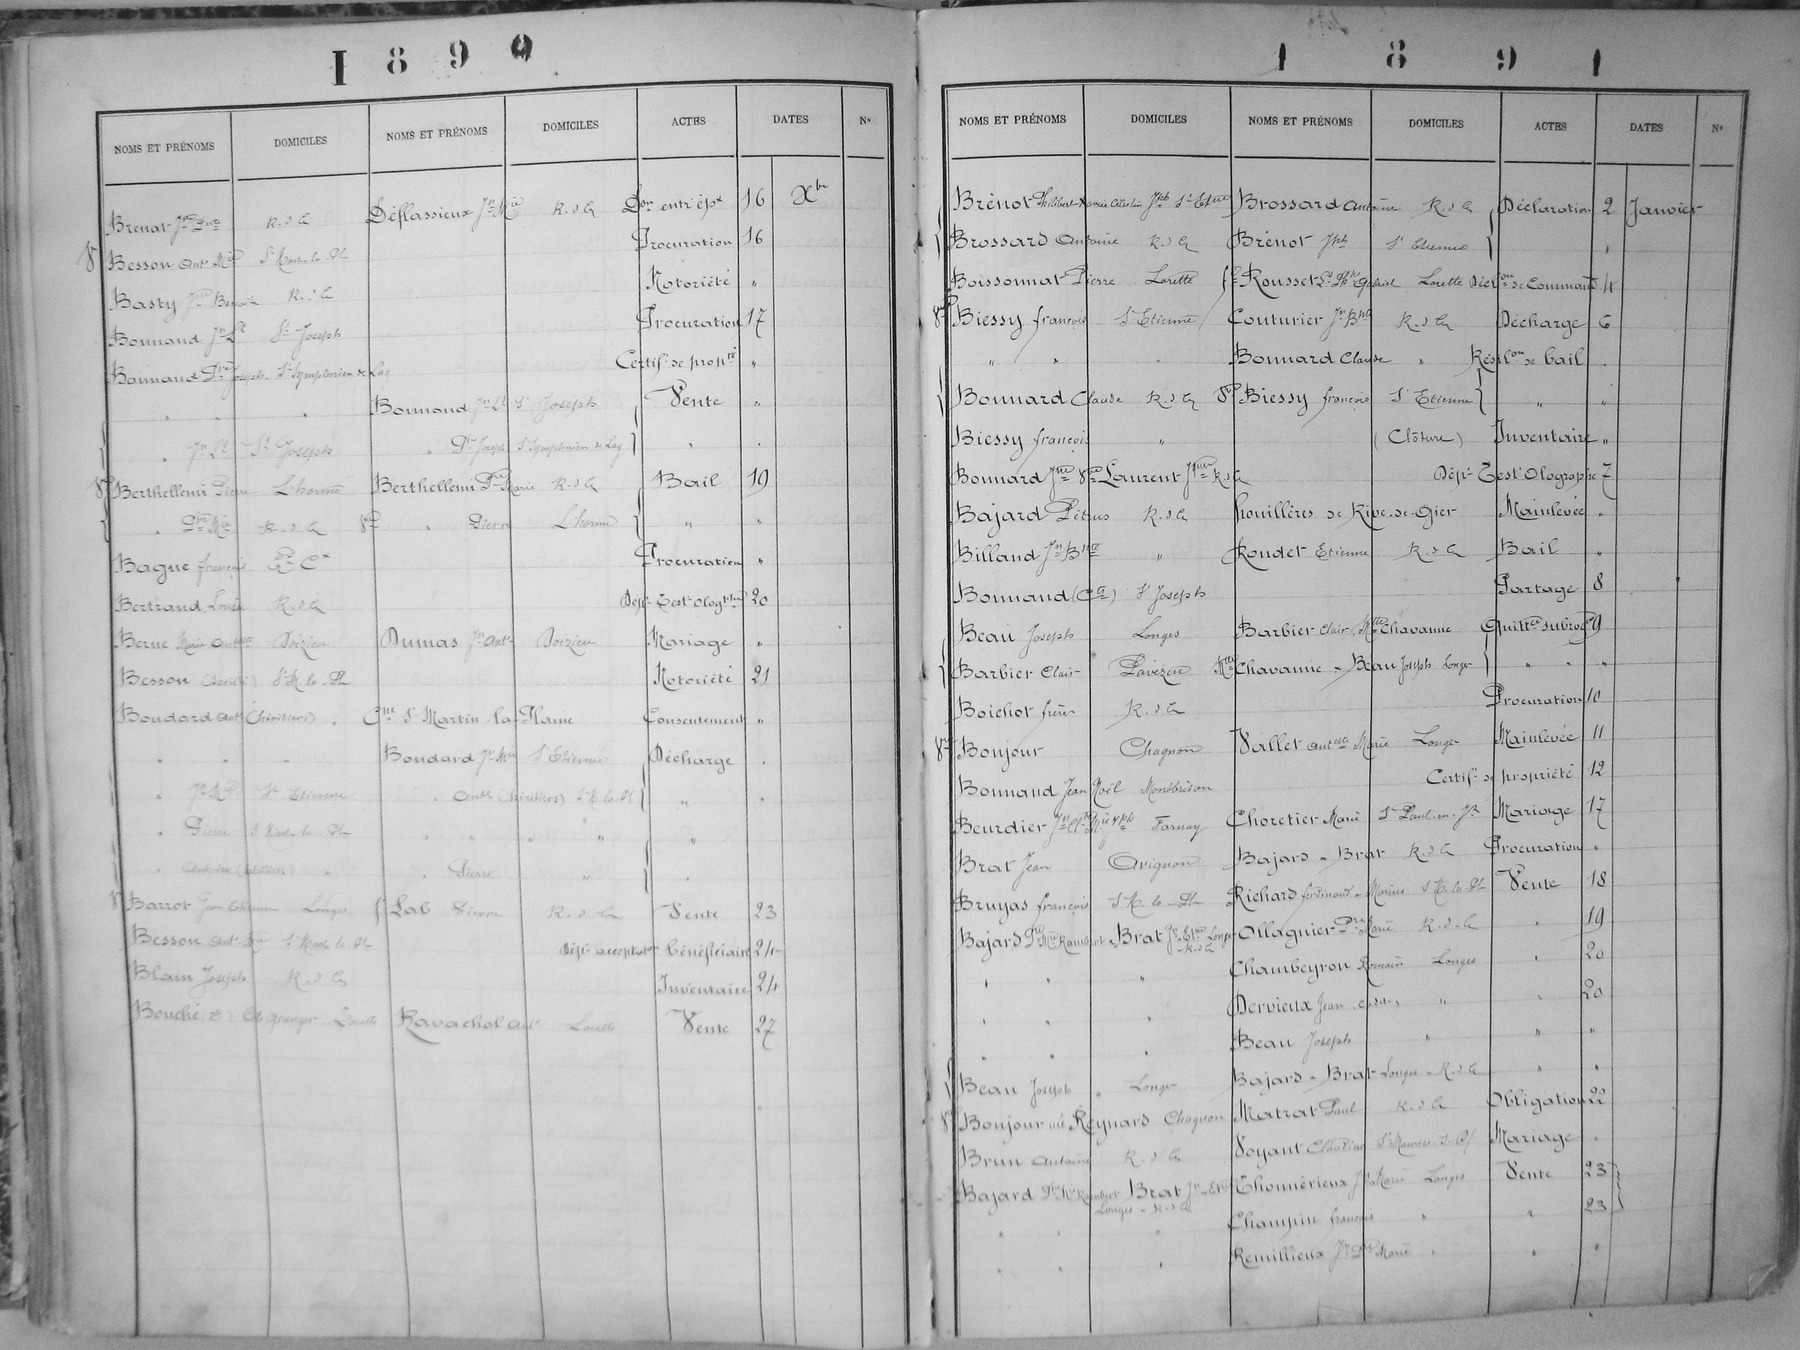 1890
NOMS ET PRÉNOMS DOMICILES NOMS ET PRÉNOMS DOMICILES ACTES DATES N°
Brenat R.d.G Déflassieux Jn Mie R.d.G Don entr'épx 16 Xbre
Besson Ant. St Mart. la Pl. Procuration 16
Basty R.d.G Notoriété "
Bonnand Jn Lt St Joseph Procuration 17
Bonnand Pre Joseph St Symphorien de Lay Certif. de propté "
" " " Bonnand Jn Lt St Joseph Vente "
" Jn Lt St Joseph " Pre Joseph St Symphorien de Lay " "
Vve Berthellemi Pierre L'horme Berthellemi Pre Marie R.d.G Bail 19
" Pre Mie R.d.G Vve " Pierre L'horme " "
Bague françois Gde Cx Procuration "
Bertrand Louise R.d.G Dépt Test. Ologphe 20
Berne Marie Antte Doizieu Dumas Jn Ant. Doizieu Mariage "
Besson (société) St M. la Pl. Notoriété 21
Boudard Ant. (héritiers) " Cne St Martin-la-Plaine Consentement "
" " " Boudard Jn Mie St Etienne Décharge "
" Jn Mie St Etienne " Ant. (héritiers) St M. la Pl. " "
" Pierre St Mart. la Pl. " " " "
" Antoine (héritiers) " " Pierre " "
Barrot Jean Etienne Longes Lab Pierre R.d.G Vente 23
Besson Ant. St Mart. la Pl. Dépt acceptat bénéficiaire 24
Blam Joseph R.d.G Inventaire 24
Bouché Granger Lorette Ravachol Ant. Lorette Vente 27
1891
NOMS ET PRÉNOMS DOMICILES NOMS ET PRÉNOMS DOMICILES ACTES DATES N°
Brénot Philibert Jph St Etne Brossard Antoine R.d.G Déclaration 2 Janvier
Brossard Antoine R.d.G Brénot Jph St Etienne "
Boissonnat Pierre Lorette Rousset Gabriel Lorette Déclon de Command 4
Biessy françois St Etienne Couturier Jn Bte R.d.G Décharge 6
" " " Bonnard Claude " Résilon de bail "
Bonnard Claude R.d.G Biessy françois St Etienne " "
Biessy françois " (Clôture) Inventaire "
Bonnard Jne Vve Laurent R.d.G Dépt Test. Olographe 7
Bajard Pétrus R.d.G houillères de Rive-de-Gier Mainlevée "
Billand Jn Bte " Roudet Etienne R.d.G Bail "
Bonnand St Joseph Partage 8
Beau Joseph Longes Barbier Clair Mtte Chavanne Quittce subrog. 9
Barbier Clair Pavezin Mtte Chavanne - Beau Joseph Longes " " "
Boichot frères R.d.G Procuration 10
Bonjour Chagnon Vallet Marie Longes Mainlevée 11
Bonnand Jean Noël Montbrison Certif. de propriété 12
Beurdier Farnay Choretier Marie St Paul-en-Jt Mariage 17
Brat Jean Avignon Bajard - Brat R.d.G Procuration "
Bruyas françois St M. la Pl. Richard ferdinand - Marius St M. la Pl. Vente 18
Bajard Pre Mie Rambert & Brat Jn Etne Longes - R.d.G Ollagnier Pre Marie R.d.G " 19
" " " Chambeyron Romain Longes " 20
" " " Dervieux Jean " " 20
" " " Beau Joseph " " "
Beau Joseph " Longes Bajard - Brat Longes - R.d.G " "
Bonjour née Reynard Chagnon Matrat Paul R.d.G Obligation 22
Brun Antoine R.d.G Voyant Claudine Mariage "
Bajard Pre Mie Rambert Brat Jn Etne Longes - R.d.G Thonnérieux Marie Longes Vente 23
" " " Champin françois " " 23
" " " Remillieux Marie " " "